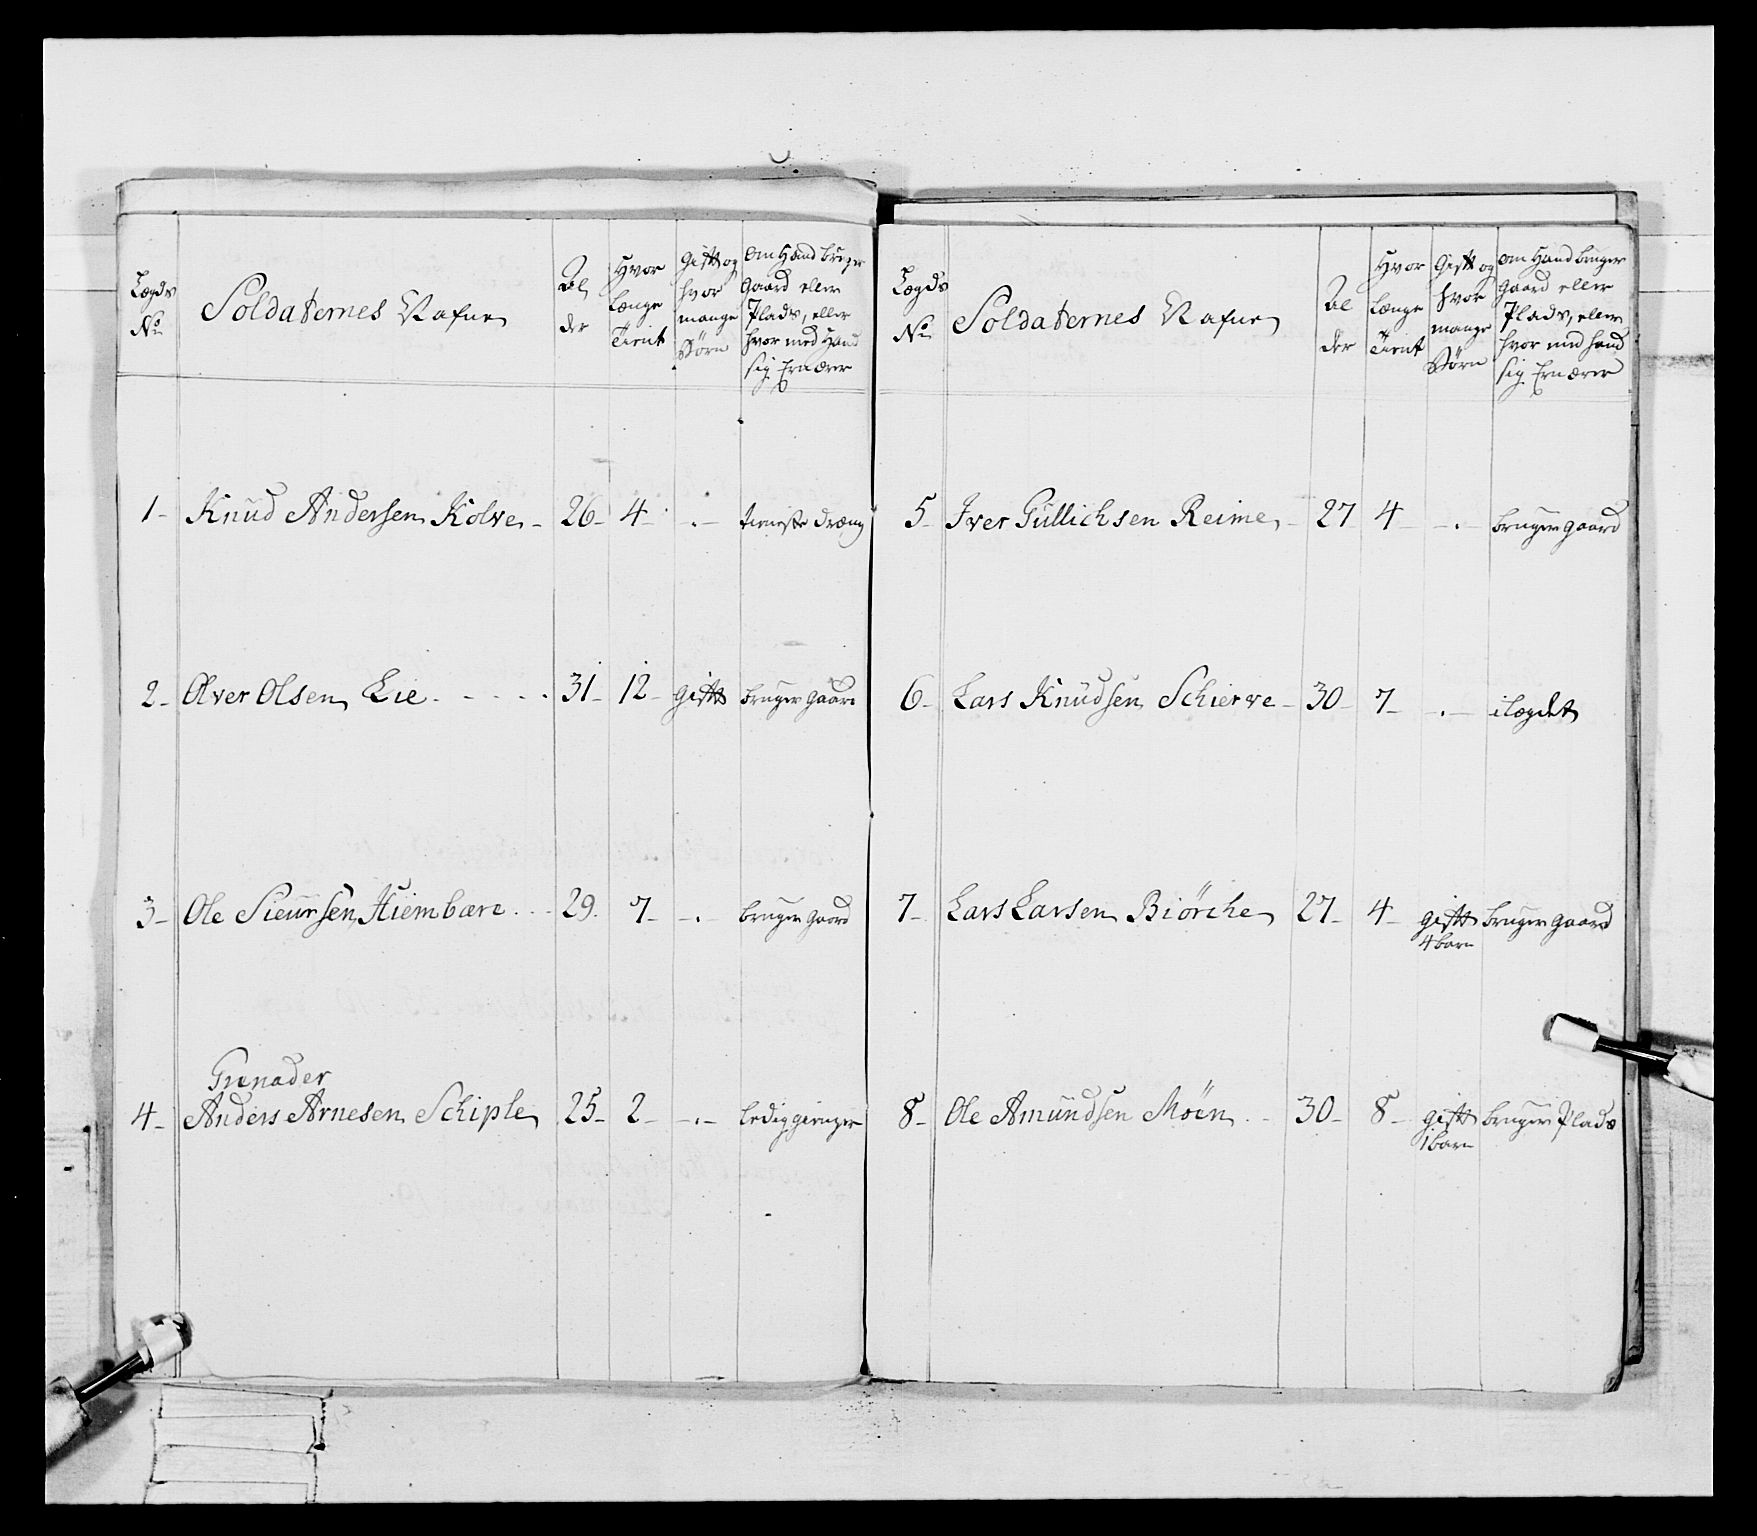 Lægds No
Soldaternes Nafne
Al
der
Hvor
Længe
Tient
Gift og
hvor
mange
Börn
om Hand bruger
Gaard eller
Plads, eller
hvor med Hand
sig Ernærer
1- Knud Andersen Kolve - 26- 4- -.- tieneste dræng
2- Olver Olsen Lie - - - - 31- 12- gift bruger gaard
3- Ole Siursen Hiembære - - 29. 7- -.- bruger gaard
Grenader
4- Anders Arnesen Schiple 25- 2- -.- ledig gienger
Lægds No
Soldaternes Nafne
Al
der
Hvor
Længe
Tient
Gift og
hvor
mange
Börn
om Hand bruger
Gaard eller
Plads, eller
hvor med hand
sig Ernærer
5- Iver Gullichsen Reime - 27 4- -.- bruger gaard
6- Lars Knudsen Schierve - 30- 7- -.- i Lægdet
7- Lars Larsen Biörche 27- 4- gift bruger gaard
4 barn
8- Ole Amundsen Möen - - 30- 8- gift bruger Plads
1 barn